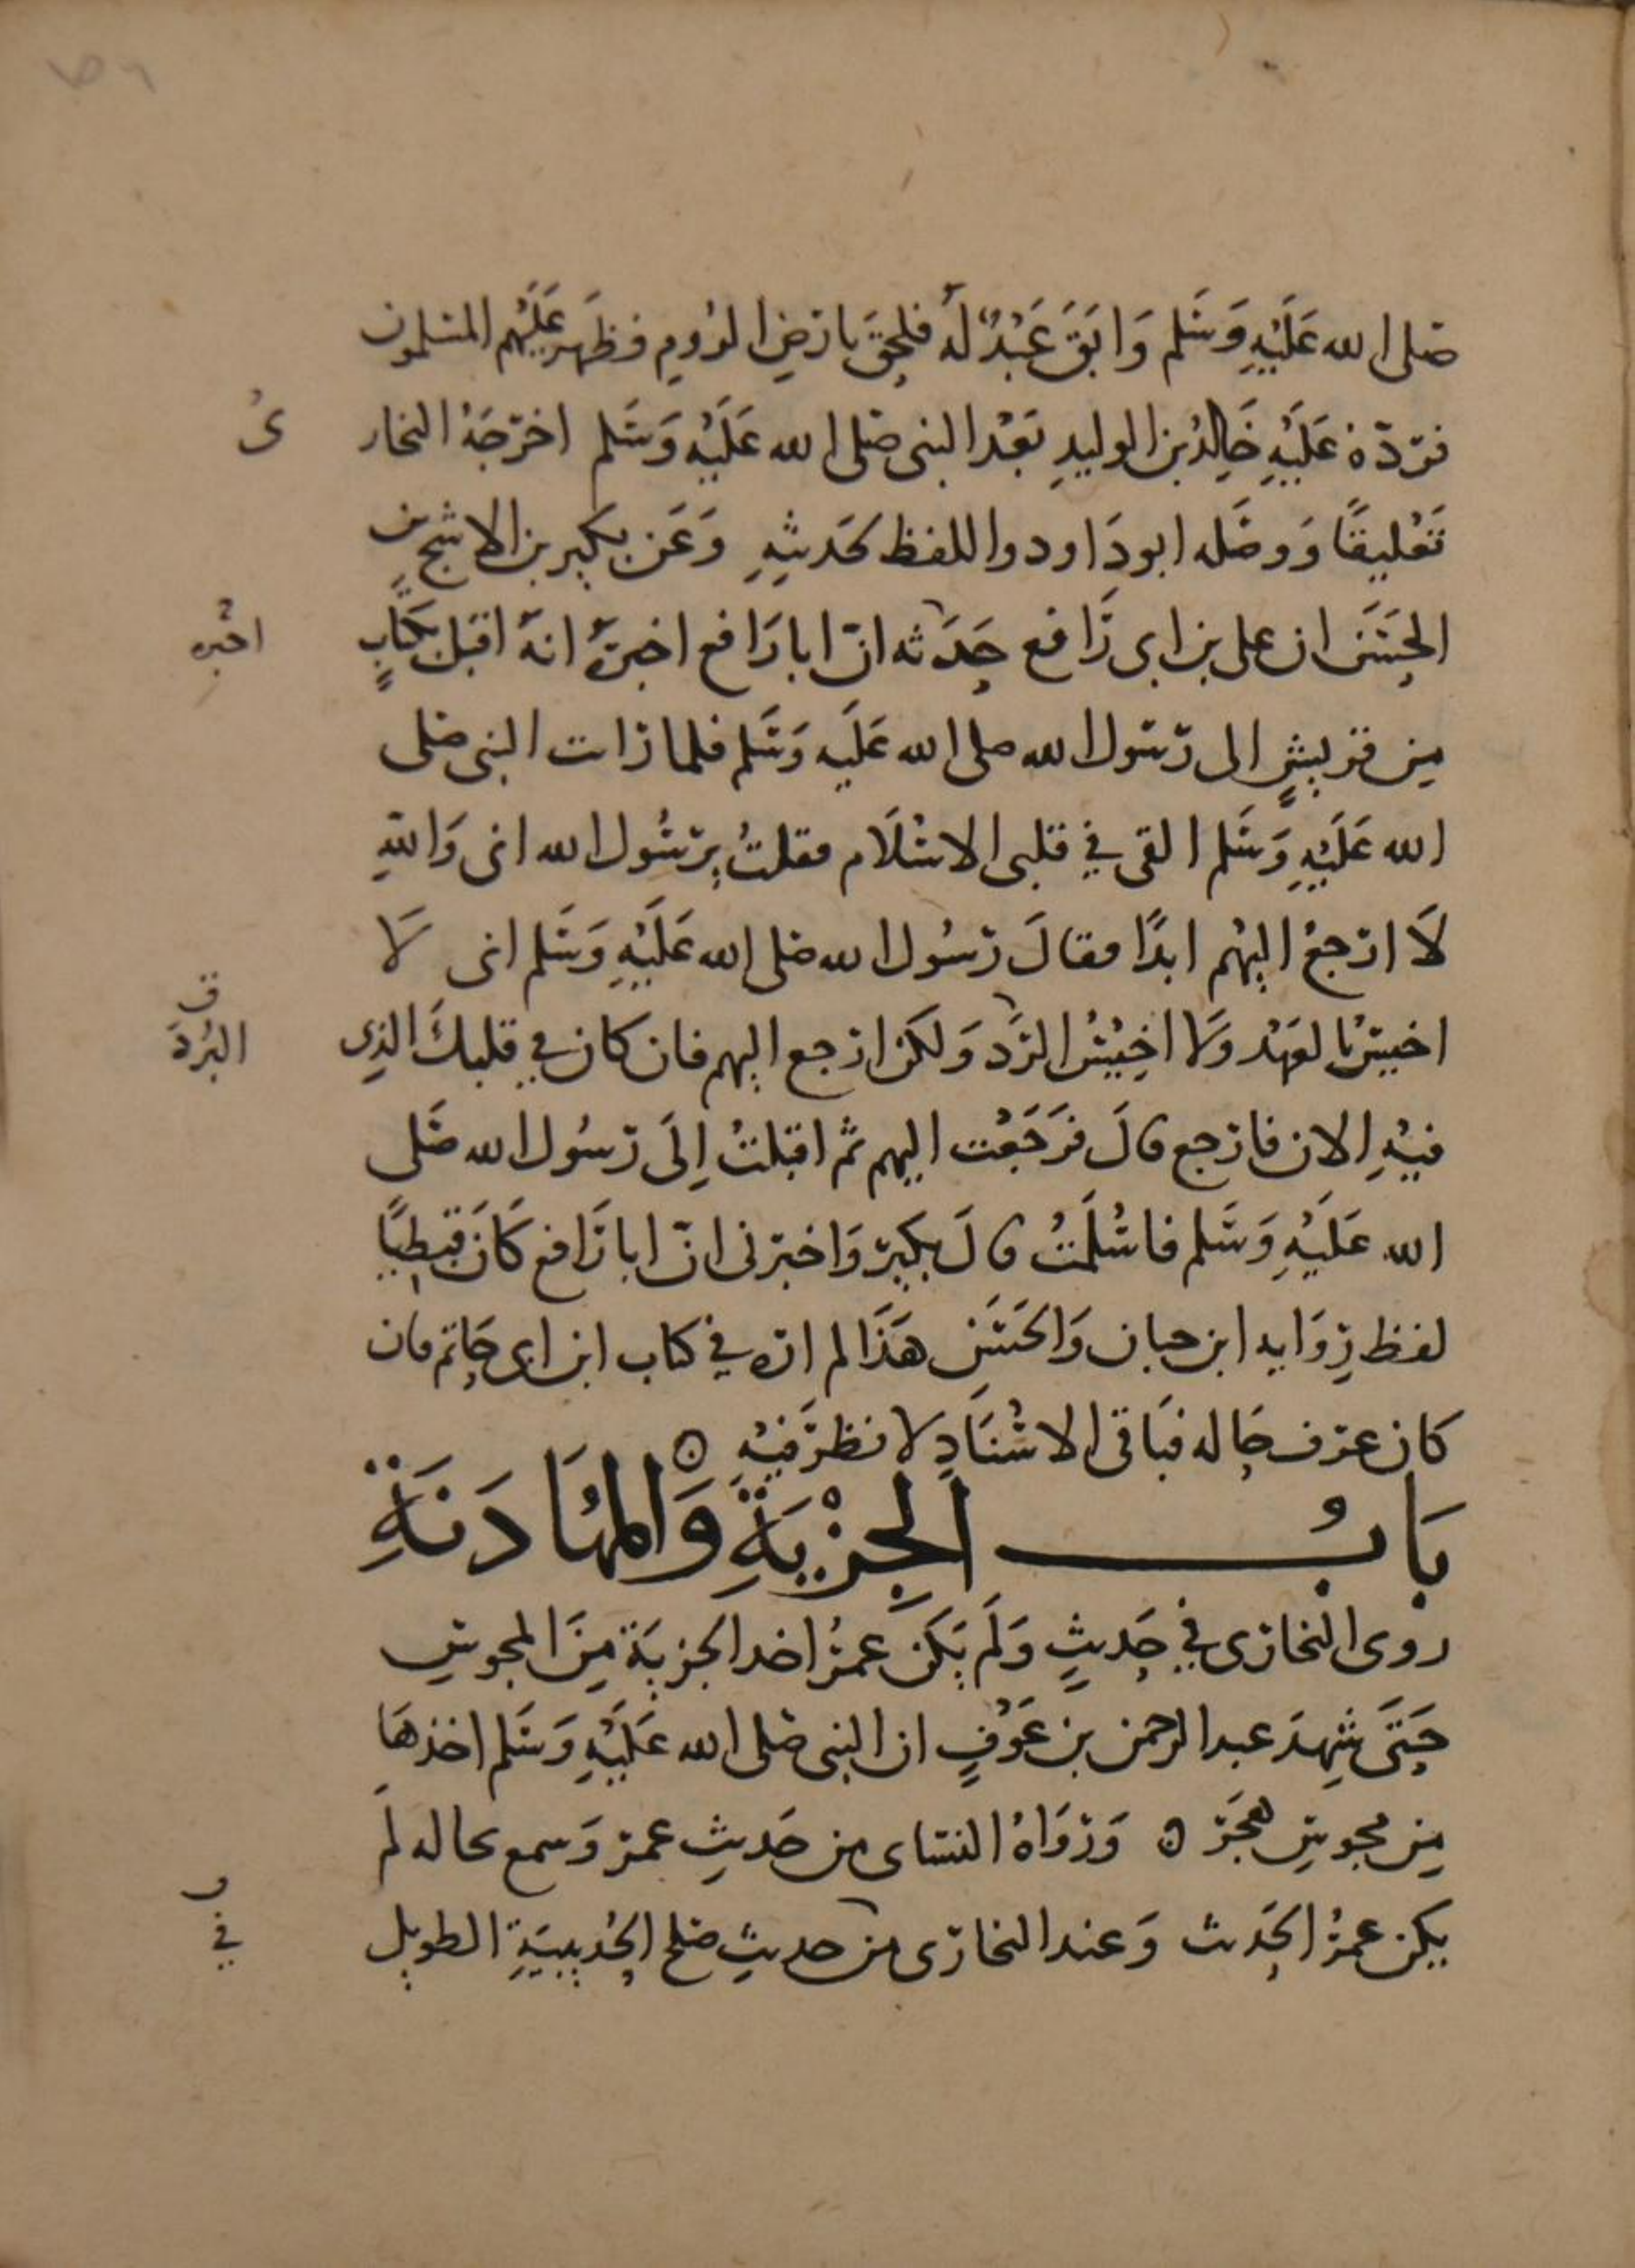 صلى الله عَلَيْهِ وَسَلم وَابَقَ عَبْدٌ لَهُ فلحِقَ بارضِ الرُومِ فظَهَر عَلَيْهم المسلمون
فردّهُ عَلَيْهِ خَالِدُ بن الوليدِ بَعْد النبى صلى الله عَلَيْهِ وَسَلم اخرّجَهُ البخار
ىُ
تَعْليقًا وَوصَله ابو دَاود واللفظ لحَديثِهِ وَعَن بكير بن الاشج
الحِسَن ان على بن ابى رَافع حَدَثه انّ ابا رَافع اخبرَهُ انهُ اقبل بكتابٍ
اخبره
مِن قريشٍ الى رَسول الله صلى الله عَلَيه وَسَلم فلما رَات النبى صلى
الله عَلَيْهِ وَسَلم القى في قلبى الاسْلَام فقلتُ يرسُول الله انى وَاللهِ
لَا ارجعُ اليْهم ابدًا فقالَ رسُول الله صلى الله عَلَيْهِ وَسَلم انى لَا
اخيسُ بالعَهْد وَلا اخِيْسُ الرَّد وَلكن ارجع اليهم فان كان في قلبكَ الذِى
ق
البُرُدَ
فيْهِ الان فارجع قالَ فرَجَعْت اليهم ثم اقبلتُ اِلَى رَسُول الله صَلى
الله عَلَيْهِ وَسَلم فاسْلَمتُ قالَ بكيرٌ وَاخبرنى انّ ابا رَافع كَانَ قبطيًا
لفظ رِوَايه ابن حبان وَالحَسَن هَذَا لم اره في كتاب ابن ابى حَاتم فان
كان عرف حَاله فبَاقى الاسْنَادِ لا نظرَ فيْهِ ه
بَابُ الجِزْيَةِ وَالمهَادَنَةِ
روى البخارى في حَديثٍ وَلَم يَكن عمرُ اخد الجزيَة مِنَ المجوسِ
حَتَى شِهدَ عبد الرحمن بن عَوْفٍ ان النبى صلى الله عَلَيْهِ وَسَلم اخذهَا
مِن مجوسِ هَجَر ه وَرَوَاهُ النسَاى من حَديثِ عمرَ وَسمع بحاله لَم
يكن عمرُ الحَدث وَعند البخارى من حديثِ صلح الحُديبيَةِ الطويل
في